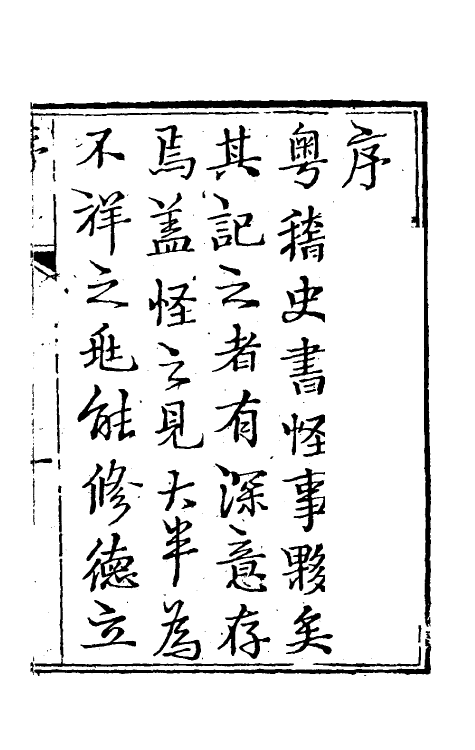 序
粤稽史書怪事夥矣
其記之者有深意存
焉盖怪之見大半為
不祥之兆能修德立